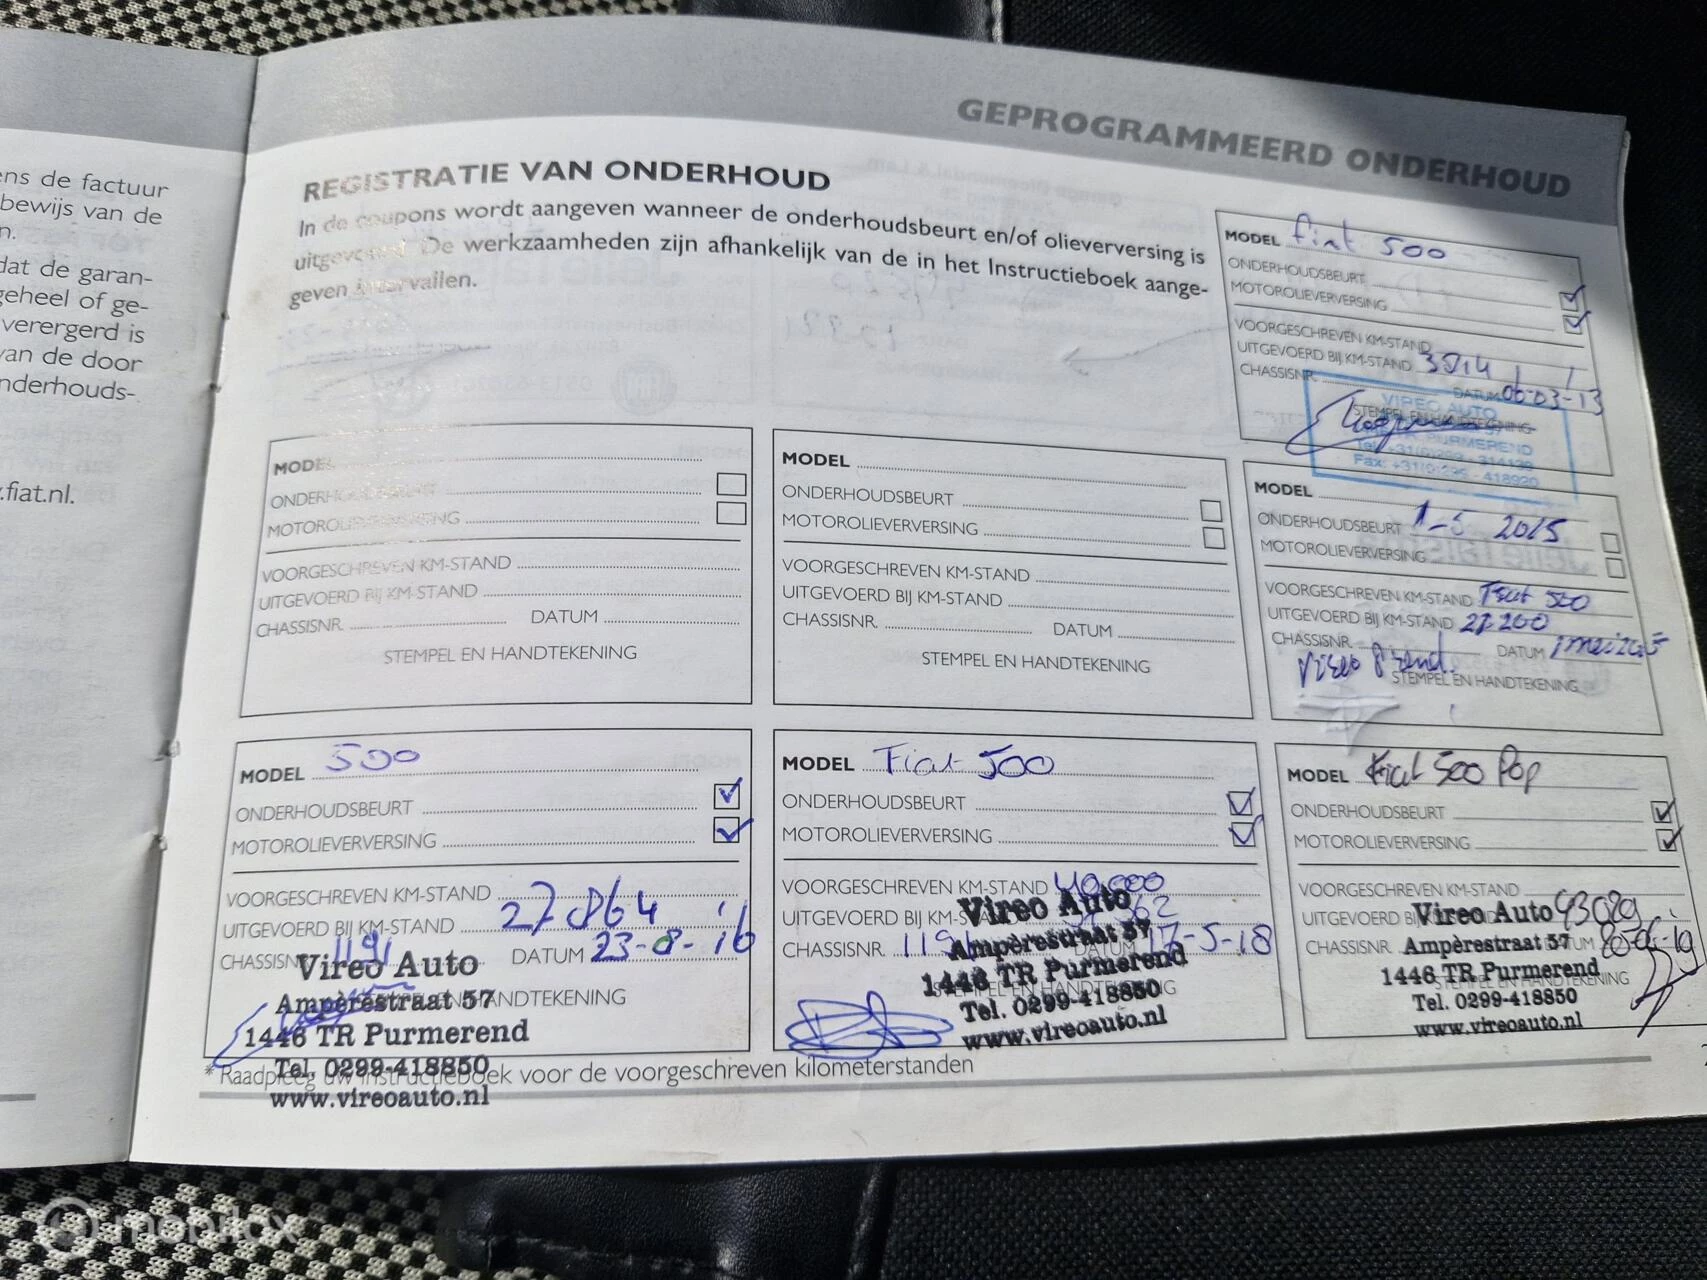 ens de factuur
bewijs van de
n.
dat de garan-
geheel of ge-
verergerd is
van de door
nderhouds-
.fiat.nl.
GEPROGRAMMEERD ONDERHOUD
REGISTRATIE VAN ONDERHOUD
In de coupons wordt aangeven wanneer de onderhoudsbeurt en/of olieverversing is
uitgevoerd. De werkzaamheden zijn afhankelijk van de in het Instructieboek aange-
geven intervallen.
MODEL fiat 500
ONDERHOUDSBEURT
MOTOROLIEVERVERSING
VOORGESCHREVEN KM-STAND
UITGEVOERD BIJ KM-STAND
CHASSISNR. DATUM 06-03-13
STEMPEL EN HANDTEKENING
VIREO AUTO
PURMEREND
Tel. +31(0)299 - 314139
Fax: +31(0)299 - 418920
MODEL
ONDERHOUDSBEURT
MOTOROLIEVERVERSING
VOORGESCHREVEN KM-STAND
UITGEVOERD BIJ KM-STAND
CHASSISNR. DATUM
STEMPEL EN HANDTEKENING
MODEL
ONDERHOUDSBEURT
MOTOROLIEVERVERSING
VOORGESCHREVEN KM-STAND
UITGEVOERD BIJ KM-STAND
CHASSISNR. DATUM
STEMPEL EN HANDTEKENING
MODEL
ONDERHOUDSBEURT 1-5 2015
MOTOROLIEVERVERSING
VOORGESCHREVEN KM-STAND Fiat 500
UITGEVOERD BIJ KM-STAND 27.200
CHASSISNR. DATUM 1 mei 2015
Vireo
STEMPEL EN HANDTEKENING
MODEL 500
ONDERHOUDSBEURT
MOTOROLIEVERVERSING
VOORGESCHREVEN KM-STAND
UITGEVOERD BIJ KM-STAND 27864
CHASSISNR. 1191 DATUM 23-8-16
STEMPEL EN HANDTEKENING
Vireo Auto
Ampèrestraat 57
1446 TR Purmerend
Tel. 0299-418850
www.vireoauto.nl
MODEL Fiat 500
ONDERHOUDSBEURT
MOTOROLIEVERVERSING
VOORGESCHREVEN KM-STAND 40.000
UITGEVOERD BIJ KM-STAND
CHASSISNR. 1191 DATUM 17-5-18
Vireo Auto
Ampèrestraat 57
1446 TR Purmerend
Tel. 0299-418850
www.vireoauto.nl
MODEL Fiat 500 Pop
ONDERHOUDSBEURT
MOTOROLIEVERVERSING
VOORGESCHREVEN KM-STAND
UITGEVOERD BIJ 43029
CHASSISNR. DATUM
STEMPEL EN HANDTEKENING
Vireo Auto
Ampèrestraat 57
1446 TR Purmerend
Tel. 0299-418850
www.vireoauto.nl
* Raadpleeg uw instructieboek voor de voorgeschreven kilometerstanden
mobilox